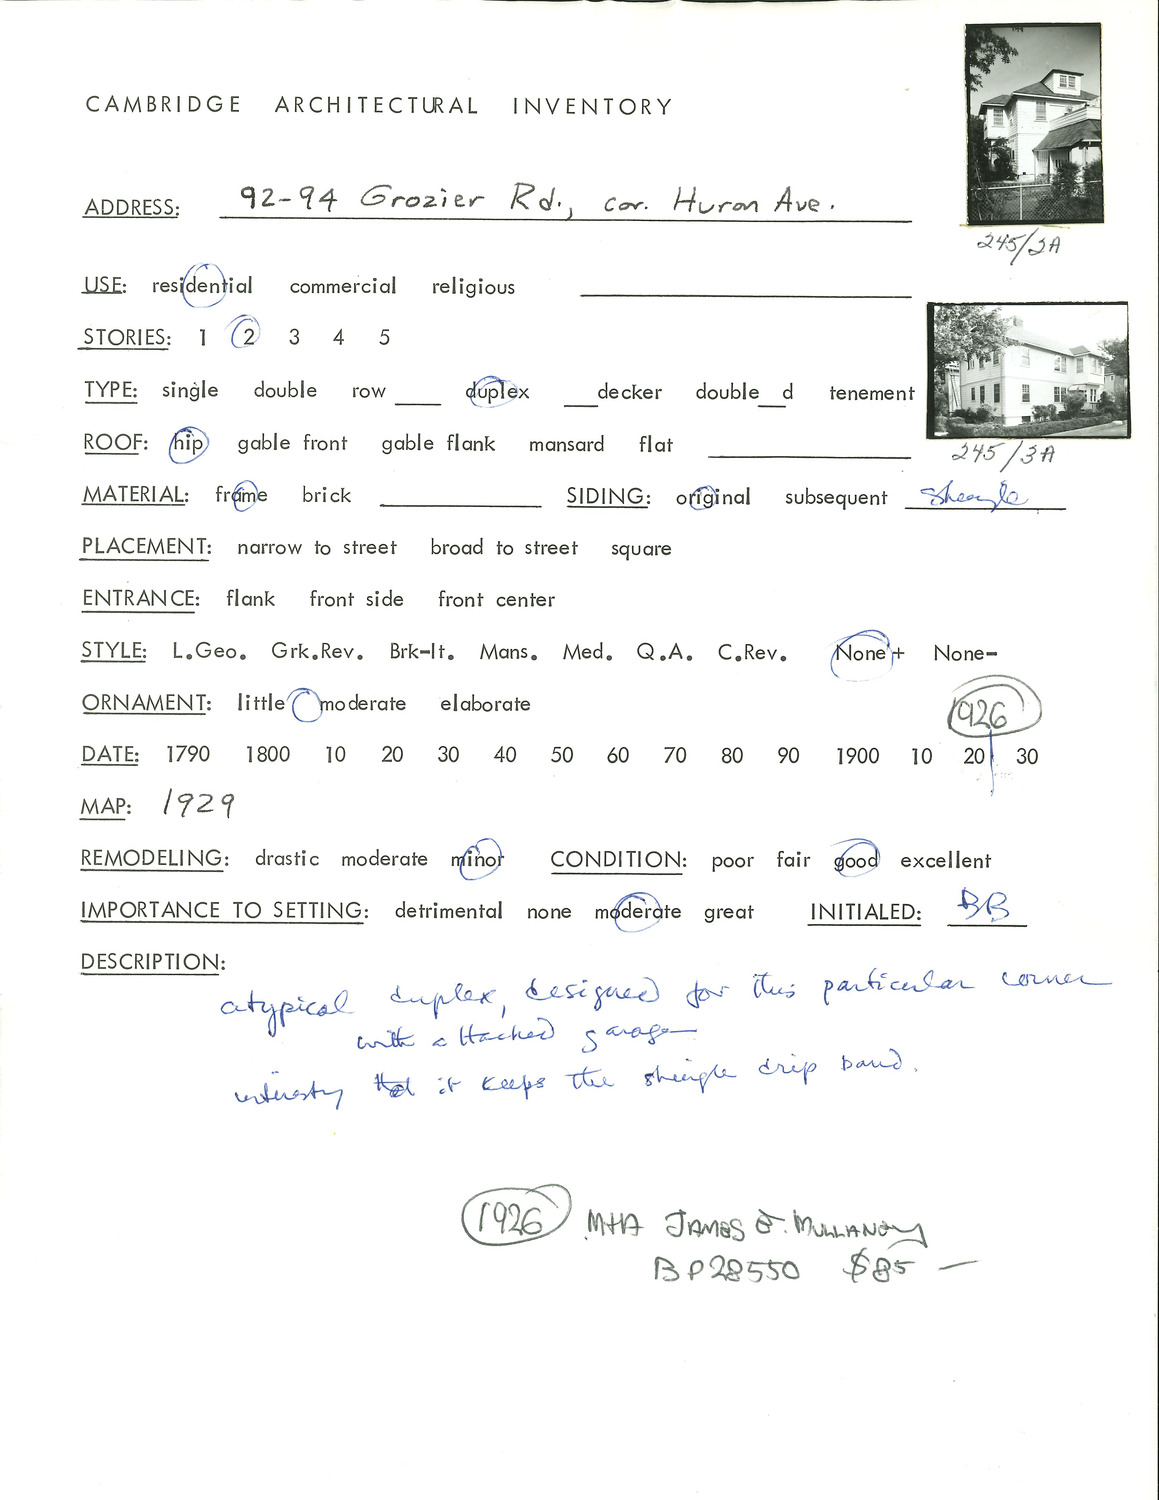 CAMBRIDGE ARCHITECTURAL INVENTORY
ADDRESS: 92-94 Grozier Rd., cor. Huron Ave.
245/2A
USE: residential commercial religious
STORIES: 1 2 3 4 5
TYPE: single double row ___ duplex ___decker double__d tenement
ROOF: hip gable front gable flank mansard flat
245/3A
MATERIAL: frame brick SIDING: original subsequent shingle
PLACEMENT: narrow to street broad to street square
ENTRANCE: flank front side front center
STYLE: L.Geo. Grk.Rev. Brk-It. Mans. Med. Q.A. C.Rev. None+ None-
ORNAMENT: little moderate elaborate
1926
DATE: 1790 1800 10 20 30 40 50 60 70 80 90 1900 10 20 30
MAP: 1929
REMODELING: drastic moderate minor CONDITION: poor fair good excellent
IMPORTANCE TO SETTING: detrimental none moderate great INITIALED: BB
DESCRIPTION:
atypical duplex, designed for this particular corner
with attached garage
it keeps the shingle drip band.
1926 JAMES E. MULLANEY
BP28550 $85 —